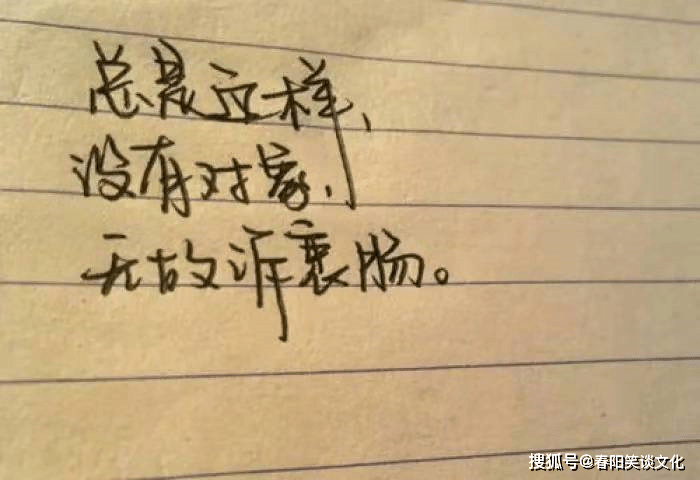 总是这样，
没有对象，
无故诉衷肠。
搜狐号@春阳笑谈文化